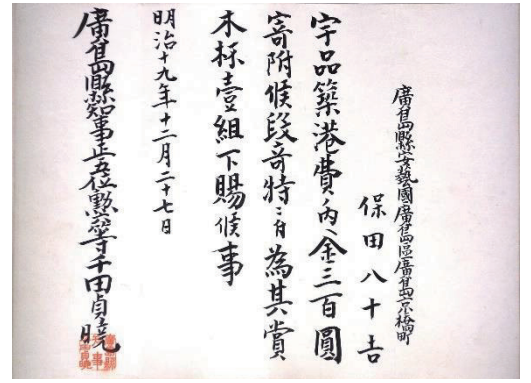 廣島縣安藝國廣島區廣島京橋町
保田八十吉
宇品築港費ノ内ヘ金三百圓
寄附候段奇特ニ付為其賞
木杯壹組下賜候事
明治十九年十二月二十七日
廣島縣知事正五位勲三等千田貞曉